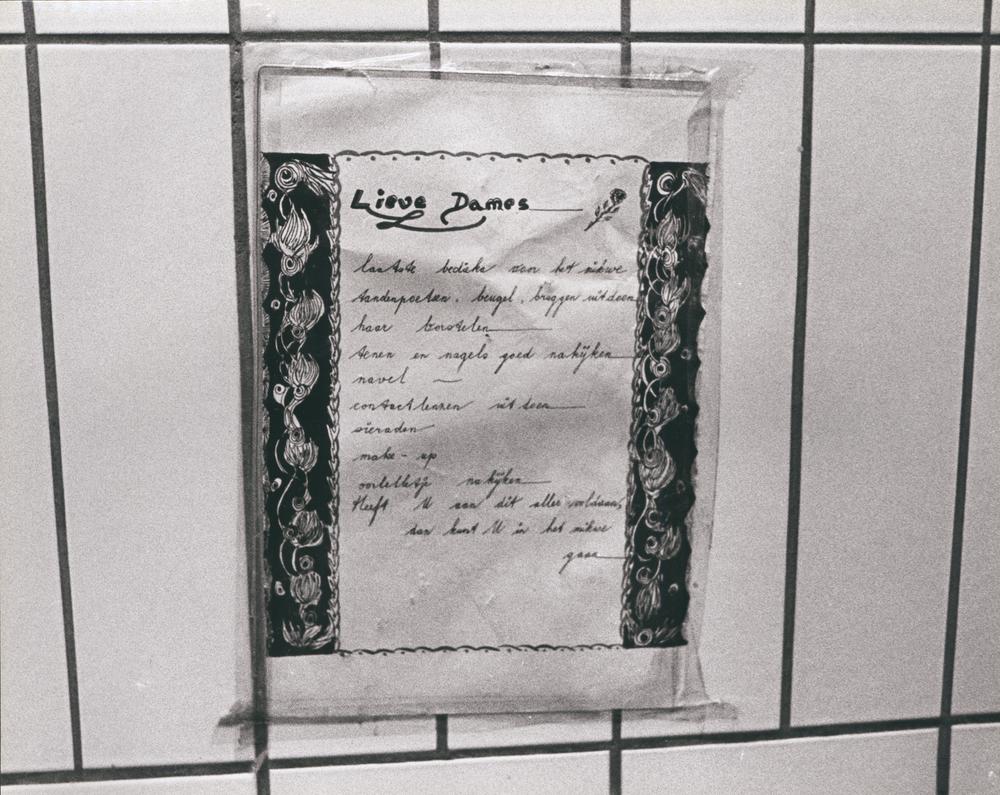 Lieve Dames
laatste bedūke voor het mikwe
tandenpoetsen, beugel, bruggen uitdoen
haar borstelen
tenen en nagels goed nakijken
navel
contactlenzen uitdoen
sieraden
make-up
oorlelletje nakijken
Heeft U aan dit alles voldaan,
dan kunt U in het mikwe
gaan